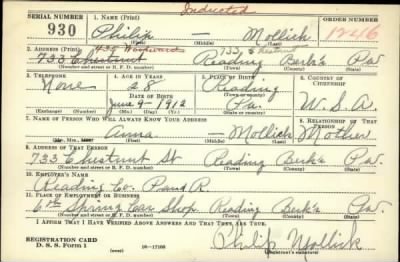 Inducted
SERIAL NUMBER 1. NAME (Print) ORDER NUMBER
930 Philip — Mollich 12416
2. ADDRESS (Print) 733 Chestnut
733 Chestnut Reading Berk's Pa.
(Number and street or R. F. D. number) (Town) (County) (State)
3. TELEPHONE 4. AGE IN YEARS 5. PLACE OF BIRTH 6. COUNTRY OF CITIZENSHIP
None Reading
DATE OF BIRTH
June 9- 1912 Pa. U. S. A.
(Exchange) (Number) (Mo.) (Day) (Yr.) (State or country)
7. NAME OF PERSON WHO WILL ALWAYS KNOW YOUR ADDRESS 8. RELATIONSHIP OF THAT PERSON
Anna — Mollich Mother
(Mr., Mrs., Miss) (First) (Middle) (Last)
9. ADDRESS OF THAT PERSON
733 Chestnut St Reading Berk's Pa.
(Number and street or R. F. D. number) (Town) (County) (State)
10. EMPLOYER'S NAME
Reading Co. P and R
11. PLACE OF EMPLOYMENT OR BUSINESS
6th Spring Car Shop. Reading Berk's Pa.
(Number and street or R. F. D. number) (Town) (County) (State)
I AFFIRM THAT I HAVE VERIFIED ABOVE ANSWERS AND THAT THEY ARE TRUE.
REGISTRATION CARD
D. S. S. Form 1 (over) 16—17105 Philip Mollich
(Registrant's signature)